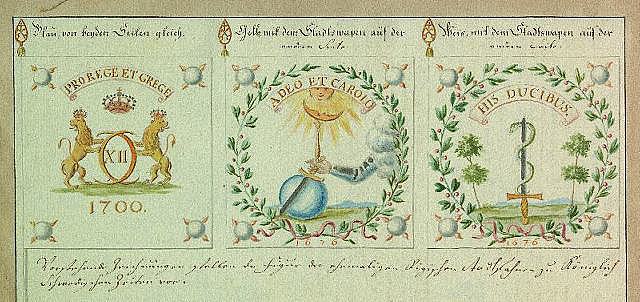 Blau, von beyden Seiten gleich.
PRO REGE ET GREGE
XII
1700.
Gelb, mit dem Stadtswapen auf der
andern Seite.
A DEO ET CAROLO
1676
Weis, mit dem Stadtswapen auf der
andern Seite.
HIS DUCIBUS.
1676
Vorstehende Zeichnungen stellen die Figur der ehemaligen Rigischen Stadtfahnen zu Königlich
Schwedischen Zeiten vor.